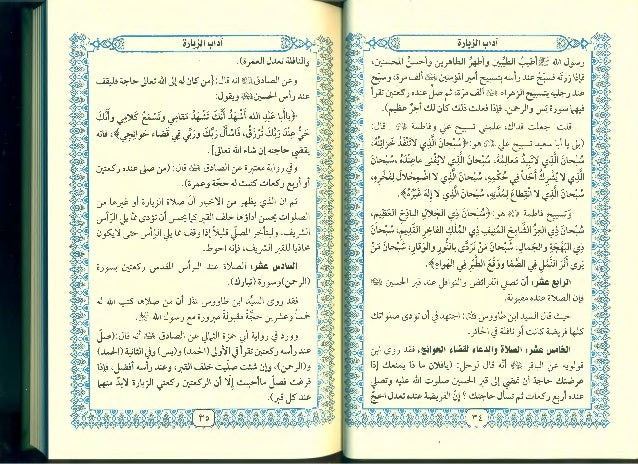 آداب الزيارة
رسول الله أطيبُ الطيِّبين وأطهرُ الطاهرين وأحسنُ المحسنين،
فإذا زرتَه فسبِّح عند رأسه بتسبيح أمير المؤمنين ألف مرّة، وسبّح
عند رجليه بتسبيح الزهراء ألف مرّة، ثم صلِّ عنده ركعتين تقرأ
فيهما سورة يس والرحمن، فإذا فعلت ذلك كان لك أجرٌ عظيم).
قلت جعلت فداك، علمني تسبيح علي وفاطمة قال:
(بلى يا أبا سعيد تسبيح علي هو: {سُبْحَانَ الَّذِي لَا تَنْفَدُ خَزَائِنُهُ،
سُبْحَانَ الَّذِي لَا تَبِيدُ مَعَالِمُهُ، سُبْحَانَ الَّذِي لَا يَفْنَى مَا عِنْدَهُ، سُبْحَانَ
الَّذِي لَا يُشْرِكُ أَحَداً فِي حُكْمِهِ، سُبْحَانَ الَّذِي لَا اضْمِحْلَالَ لِفَخْرِهِ،
سُبْحَانَ الَّذِي لَا انْقِطَاعَ لِمُدَّتِهِ، سُبْحَانَ الَّذِي لَا إِلَهَ غَيْرُهُ}.
وتسبيح فاطمة هو: {سُبْحَانَ ذِي الْجَلَالِ الْبَاذِخِ الْعَظِيمِ،
سُبْحَانَ ذِي الْعِزِّ الشَّامِخِ الْمُنِيفِ، سُبْحَانَ ذِي الْمُلْكِ الْفَاخِرِ الْقَدِيمِ، سُبْحَانَ
ذِي الْبَهْجَةِ وَالْجَمَالِ، سُبْحَانَ مَنْ تَرَدَّى بِالنُّورِ وَالْوَقَارِ، سُبْحَانَ مَنْ
يَرَى أَثَرَ النَّمْلِ فِي الصَّفَا وَوَقْعَ الطَّيْرِ فِي الْهَوَاءِ}.
الرابع عشر: أن تصلي الفرائض والنوافل عند قبر الحسين
فإن الصلاة عنده مقبولة.
حيث قال السيد ابن طاووس: اجتهد في أن تؤدي صلواتك
كلها فريضة كانت أو نافلة في الحائر.
الخامس عشر: الصلاة والدعاء لقضاء الحوائج، فقد روى ابن
قولويه عن الباقر أنه قال لرجل: (يا فلان ما ذا يمنعك إذا
عرضتك حاجة أن تمضي إلى قبر الحسين صلوات الله عليه وتصلي
عنده أربع ركعات ثم تسأل حاجتك؟ إنّ الفريضة عنده تعدل الحجّ
٣٤
آداب الزيارة
والنافلة تعدل العمرة).
وعن الصادق انه قال: {من كان له إلى الله تعالى حاجة فليقف
عند رأس الحسين ويقول:
{يا أبَا عَبْدِ اللهِ أَشْهَدُ أَنَّكَ تَشْهَدُ مَقَامِي وَتَسْمَعُ كَلَامِي وَأَنَّكَ
حَيٌّ عِنْدَ رَبِّكَ تُرْزَقُ، فَاسْأَلْ رَبَّكَ وَرَبِّي فِي قَضَاءِ حَوَائِجِي}، فانه
يقضي حاجته إن شاء الله تعالى.
وفي رواية معتبرة عن الصادق قال: (من صلى عنده ركعتين
أو أربع ركعات كتبت له حجّة وعمرة).
ثم ان الذي يظهر من الاخبار أن صلاة الزيارة أو غيرها من
الصلوات يحسن أداؤها خلف القبر كما يحسن أن تؤدى مما يلي الرأس
الشريف، وليتأخر المصلّي قليلاً إذا وقف مما يلي الرأس حتى لا يكون
محاذيا للقبر الشريف، فإنه احوط.
السادس عشر: الصلاة عند الرأس المقدس ركعتين بسورة
(الرحمن) وسورة (تبارك).
فقد روى السيّد ابن طاووس أن من صلاها كتب الله له
خمساً وعشرين حجّة مقبولة مبرورة مع رسول الله.
وورد في رواية أبي حمزة الثمالي عن الصادق أنه قال: (صلِّ
عند رأسه ركعتين تقرأ في الأولى (الحمد) و(يس) وفي الثانية (الحمد)
و(الرحمن)، وإن شئت صليت خلف القبر، وعند رأسه أفضل. فإذا
فرغت فصلِّ ما أحببت إلّا أن الركعتين ركعتي الزيارة لابدّ منهما
عند كل قبر).
٣٥